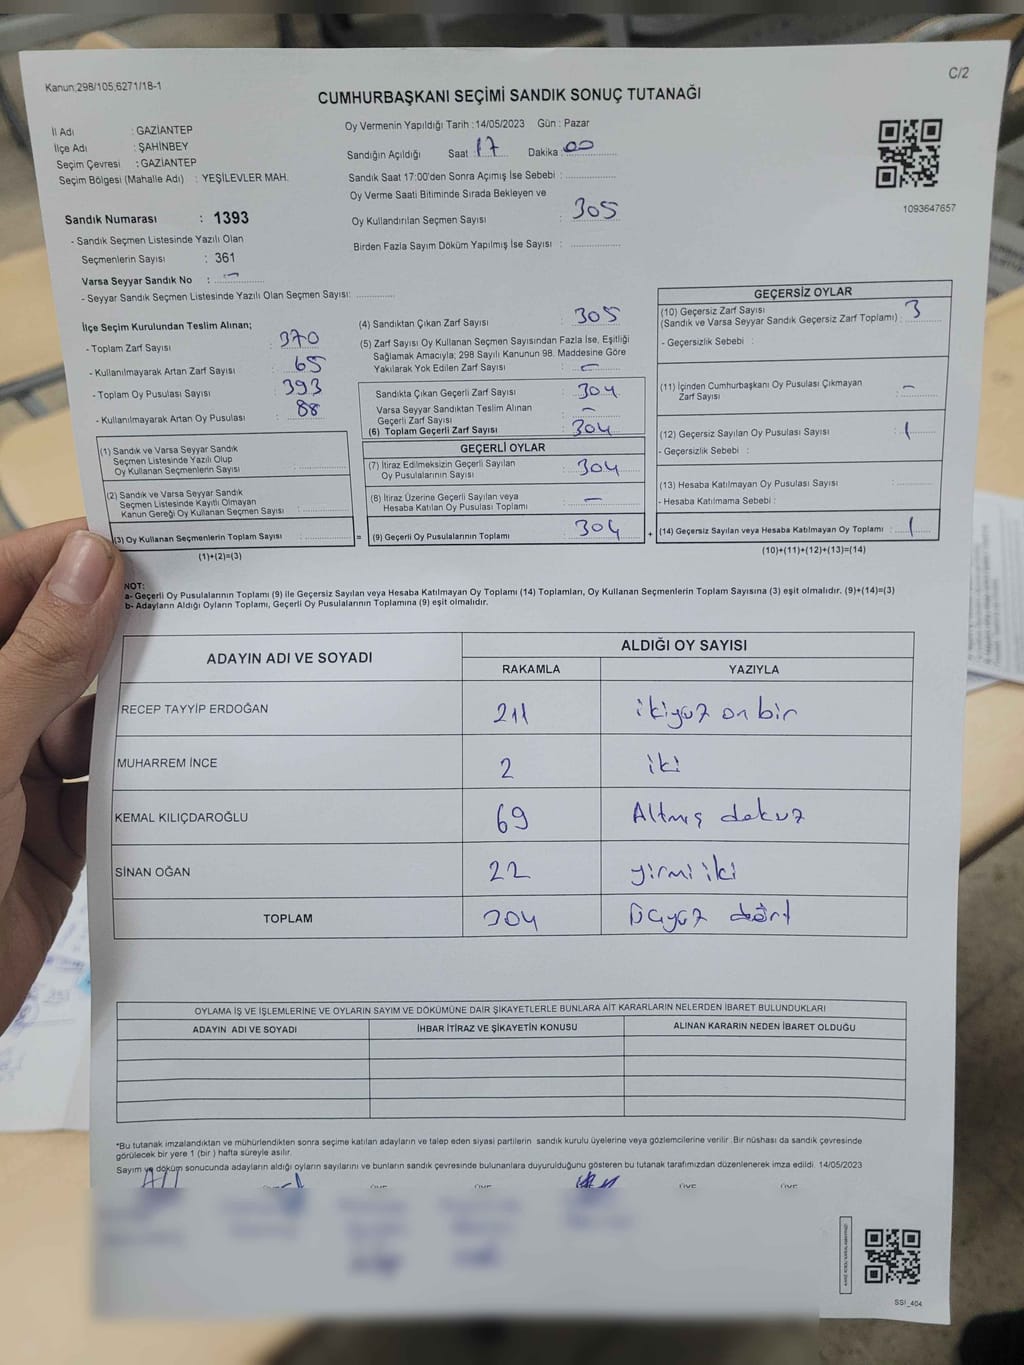 Kanun;298/105;6271/18-1
C/2
CUMHURBAŞKANI SEÇİMİ SANDIK SONUÇ TUTANAĞI
İl Adı : GAZİANTEP
İlçe Adı : ŞAHİNBEY
Seçim Çevresi : GAZİANTEP
Seçim Bölgesi (Mahalle Adı) : YEŞİLEVLER MAH.
Oy Vermenin Yapıldığı Tarih : 14/05/2023 Gün : Pazar
Sandığın Açıldığı Saat : 17 Dakika : 00
Sandık Saat 17:00'den Sonra Açımış İse Sebebi :
Oy Verme Saati Bitiminde Sırada Bekleyen ve
Oy Kullandırılan Seçmen Sayısı : 305
Birden Fazla Sayım Döküm Yapılmış İse Sayısı :
1093647657
Sandık Numarası : 1393
- Sandık Seçmen Listesinde Yazılı Olan
Seçmenlerin Sayısı : 361
Varsa Seyyar Sandık No : -
- Seyyar Sandık Seçmen Listesinde Yazılı Olan Seçmen Sayısı:
İlçe Seçim Kurulundan Teslim Alınan;
- Toplam Zarf Sayısı : 370
- Kullanılmayarak Artan Zarf Sayısı : 65
- Toplam Oy Pusulası Sayısı : 393
- Kullanılmayarak Artan Oy Pusulası : 88
(1) Sandık ve Varsa Seyyar Sandık
Seçmen Listesinde Yazılı Olup
Oy Kullanan Seçmenlerin Sayısı :
(2) Sandık ve Varsa Seyyar Sandık
Seçmen Listesinde Kayıtlı Olmayan
Kanun Gereği Oy Kullanan Seçmen Sayısı :
(3) Oy Kullanan Seçmenlerin Toplam Sayısı :
(1)+(2)=(3)
(4) Sandıktan Çıkan Zarf Sayısı : 305
(5) Zarf Sayısı Oy Kullanan Seçmen Sayısından Fazla İse, Eşitliği
Sağlamak Amacıyla; 298 Sayılı Kanunun 98. Maddesine Göre
Yakılarak Yok Edilen Zarf Sayısı : -
Sandıkta Çıkan Geçerli Zarf Sayısı : 304
Varsa Seyyar Sandıktan Teslim Alınan
Geçerli Zarf Sayısı : -
(6) Toplam Geçerli Zarf Sayısı : 304
GEÇERLİ OYLAR
(7) İtiraz Edilmeksizin Geçerli Sayılan
Oy Pusulalarının Sayısı : 304
(8) İtiraz Üzerine Geçerli Sayılan veya
Hesaba Katılan Oy Pusulası Toplamı : -
= (9) Geçerli Oy Pusulalarının Toplamı : 304
GEÇERSİZ OYLAR
(10) Geçersiz Zarf Sayısı
(Sandık ve Varsa Seyyar Sandık Geçersiz Zarf Toplamı) : 3
- Geçersizlik Sebebi :
(11) İçinden Cumhurbaşkanı Oy Pusulası Çıkmayan
Zarf Sayısı : -
(12) Geçersiz Sayılan Oy Pusulası Sayısı : 1
- Geçersizlik Sebebi :
(13) Hesaba Katılmayan Oy Pusulası Sayısı :
- Hesaba Katılmama Sebebi :
+ (14) Geçersiz Sayılan veya Hesaba Katılmayan Oy Toplamı : 1
(10)+(11)+(12)+(13)=(14)
NOT:
a- Geçerli Oy Pusulalarının Toplamı (9) ile Geçersiz Sayılan veya Hesaba Katılmayan Oy Toplamı (14) Toplamları, Oy Kullanan Seçmenlerin Toplam Sayısına (3) eşit olmalıdır. (9)+(14)=(3)
b- Adayların Aldığı Oyların Toplamı, Geçerli Oy Pusulalarının Toplamına (9) eşit olmalıdır.
ADAYIN ADI VE SOYADI
ALDIĞI OY SAYISI
RAKAMLA YAZIYLA
RECEP TAYYİP ERDOĞAN 211 ikiyüz on bir
MUHARREM İNCE 2 iki
KEMAL KILIÇDAROĞLU 69 Altmış dokuz
SİNAN OĞAN 22 yirmi iki
TOPLAM 304 Üçyüz dört
OYLAMA İŞ VE İŞLEMLERİNE VE OYLARIN SAYIM VE DÖKÜMÜNE DAİR ŞİKAYETLERLE BUNLARA AİT KARARLARIN NELERDEN İBARET BULUNDUKLARI
ADAYIN ADI VE SOYADI İHBAR İTİRAZ VE ŞİKAYETİN KONUSU ALINAN KARARIN NEDEN İBARET OLDUĞU
*Bu tutanak imzalandıktan ve mühürlendikten sonra seçime katılan adayların ve talep eden siyasi partilerin sandık kurulu üyelerine veya gözlemcilerine verilir .Bir nüshası da sandık çevresinde
görülecek bir yere 1 (bir ) hafta süreyle asılır.
Sayım ve döküm sonucunda adayların aldığı oyların sayılarını ve bunların sandık çevresinde bulunanlara duyurulduğunu gösteren bu tutanak tarafımızdan düzenlenerek imza edildi. 14/05/2023
SSİ_404